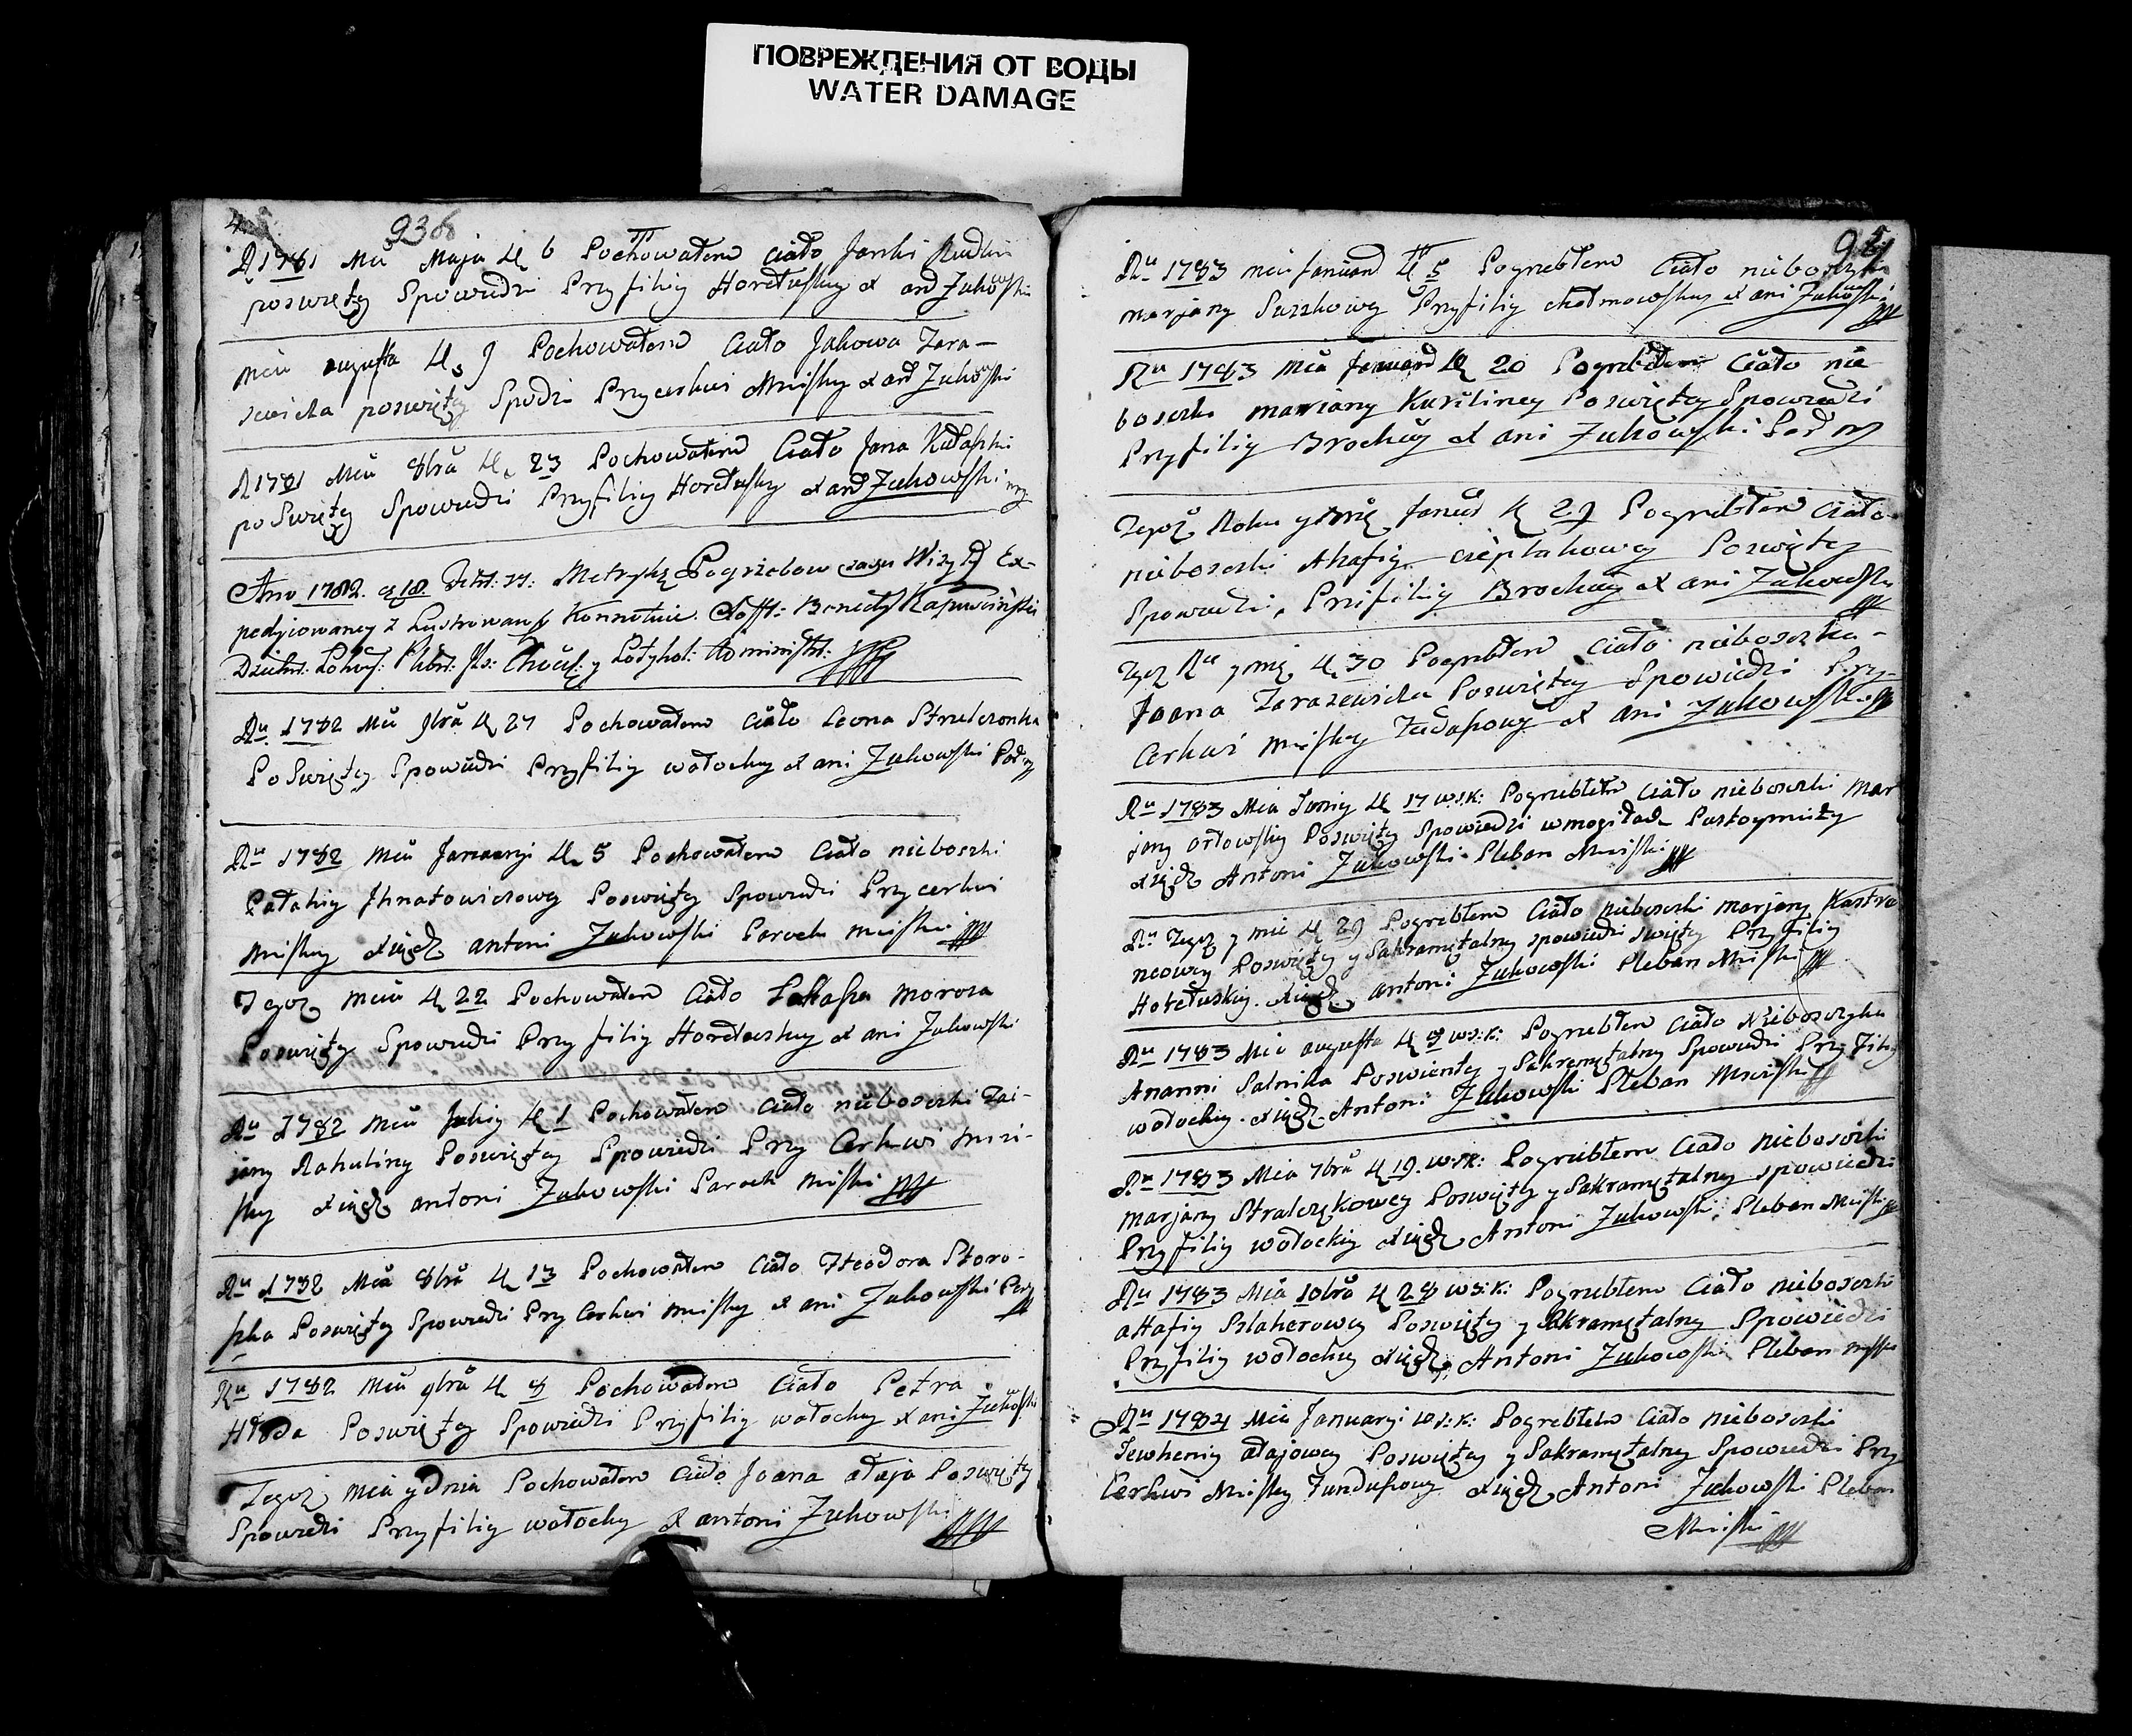 ПОВРЕЖДЕНИЯ ОТ ВОДЫ
WATER DAMAGE
936
R 1781 Mca Maja d. 6 Pochowałem Ciało Janki Rudki
poswięty Spowiedzi Przyfiliy Horełuskey X and Zukowski
Mca augusta d. 9 Pochowałem Ciało Jakowa Zara-
sewicka poswięty Spodzi Przycerkwi Mniskey X and Zukowski
R 1781 Mca 8bra d. 23 Pochowałem Ciało Jana
poswięty Spowiedzi Przyfiliy Horełuskey X and Zukowski
Ano 1782. d. 18. Metrykę Pogrzebow czasu Wizyty Ex-
pedyiowaney z Lustrowaną Benedyt Kapuscinski
Dziekan y Administr:
Ru 1782 Mca 9bra d. 27 Pochowałem Ciało Leona Strelczonka
Poswięty Spowiedzi Przyfiliy wołockey X ani Zukowski
Ru 1782 Mca Januaryi d. 5 Pochowałem Ciało nieboszki
Pałahiy Ihnatowiczowey Poswięty Spowiedzi Przy cerkwi
Mniskey Xiądz antoni Zukowski Paroch mniski
Tegoz Mca d. 22 Pochowałem Ciało Łukasza Moroza
Poswięty Spowiedzi Przy filiy Horełuskey X ani Zukowski
Ru 1782 Mca Juliy d. 1 Pochowałem Ciało nieboszki Tai-
jany Rakuliny Poswięty Spowiedzi Przy Cerkwi mni-
skey Xiądz antoni Zukowski Paroch mniski
Ru 1782 Mca 8bra d. 13 Pochowałem Ciało Theodora Storo-
Poswięty Spowiedzi Przy Cerkwi mniskey X ani Zukowski
Ru 1782 Mca 9bra d. 8 Pochowałem Ciało Petra
Poswięty Spowiedzi Przyfiliy wołockey X ani Zukowski
Tegoz Mca y dnia Pochowałem Ciało Joana ałaja Poswięty
Spowiedzi Przyfiliy wołockey X antoni Zukowski
Ru 1783 mca Januarii d. 5 Pogrebłem Ciało nieboszyki
marjany Suszkowey Przyfiliy chołmowskey X ani Zukowski
Ru 1783 Mca Januarii d. 20 Pogrebłem Ciało nie
boszki mariany Kuriliney Poswięty Spowiedzi
Przyfiliy Brockiey X ani Zukowski
Tegoż Roku y mię Januar d. 29 Pogrebłem Ciało
nieboszki Ahafiy cieplakowey Poswięty
Spowiedzi, Przifiliy Brockiey X ani Zukowski
Tegoz Ru y mię d. 30 Pogrebłem Ciało nieboszka
Joana Zarazewicka Poswięty Spowiedzi Przy
Cerkwi mniskey X ani Zukowski
Ru 1783 Mca Juniy d. 17 w.s.k: Pogrebłem Ciało nieboszki Mar
jany orłowskiy Poswięty Spowiedzi w mogiłach
Xiądz Antoni Zukowski Pleban Mniski
Ru Tegoz y mie d. 29 Pogrebłem Ciało nieboszki marjany Kastra
ncowey Poswięty y Sakramętalney spowiedzi swięty Przyfiliy
Horełuskiy. Xiądz antoni Zukowski Pleban Mniski
Ru 1783 Mca augusta d. 8 w.s.k: Pogrebłem Ciało Nieboszyka
Ananni Salnika Poswienty y Sakremętalney Spowiedzi Przy Filiy
wołockiy. Xiądz Antoni Zukowski Pleban Mniski
Ru 1783 Mca 7bra d. 19. w.s.k: Pogrubłem Ciało nieboszki
Marjany Stralczękowey Poswięty y Sakramętalney spowiedzi
Przyfiliy wołockiy Xiądz Antoni Zukowski, Pleban Mniski
Ru 1783 Mca 10bra d. 28 w.s.k: Pogrubłem Ciało nieboszki
aHafiy Szlaherowey Poswięty y Sakramętalney Spowiedzi
Przyfiliy wołockiy Xiądz Antoni Zukowski Pleban mniski
Ru 1784 Mca Januaryi w.s.k: Pogrebłem Ciało nieboszki
Jewheniy ałajowey Poswięty y Sakramętalney Spowiedzi Przy
Cerkwi Mniskey Funduszowy Xiądz Antoni Zukowski Pleban
Mniski